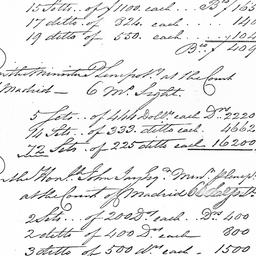 15 Setts .. of ƒ1100. each ... Bo ƒ 165
17 detto .. of 824. each ... 140
19 detto . of 550. each ... 104
Bo ƒ 409
Minister Plenip.y at the Court
Madrid — 6 Ms. Sight.
5 Sets .. of 444 dollrs each Drs 2220
14 Sets .. of 333. detto each .. 4662
72 Sets . of 225 detto each 16200
the Honble John Jay Esqr. Minr. Plenipy
at the Court of Madrid 60 days St.
2 Sets .. of 200 Ds each .. Ds 400
2 detto .. of 400 Ds each 800
3 detto .. of 500 ds each - 1500